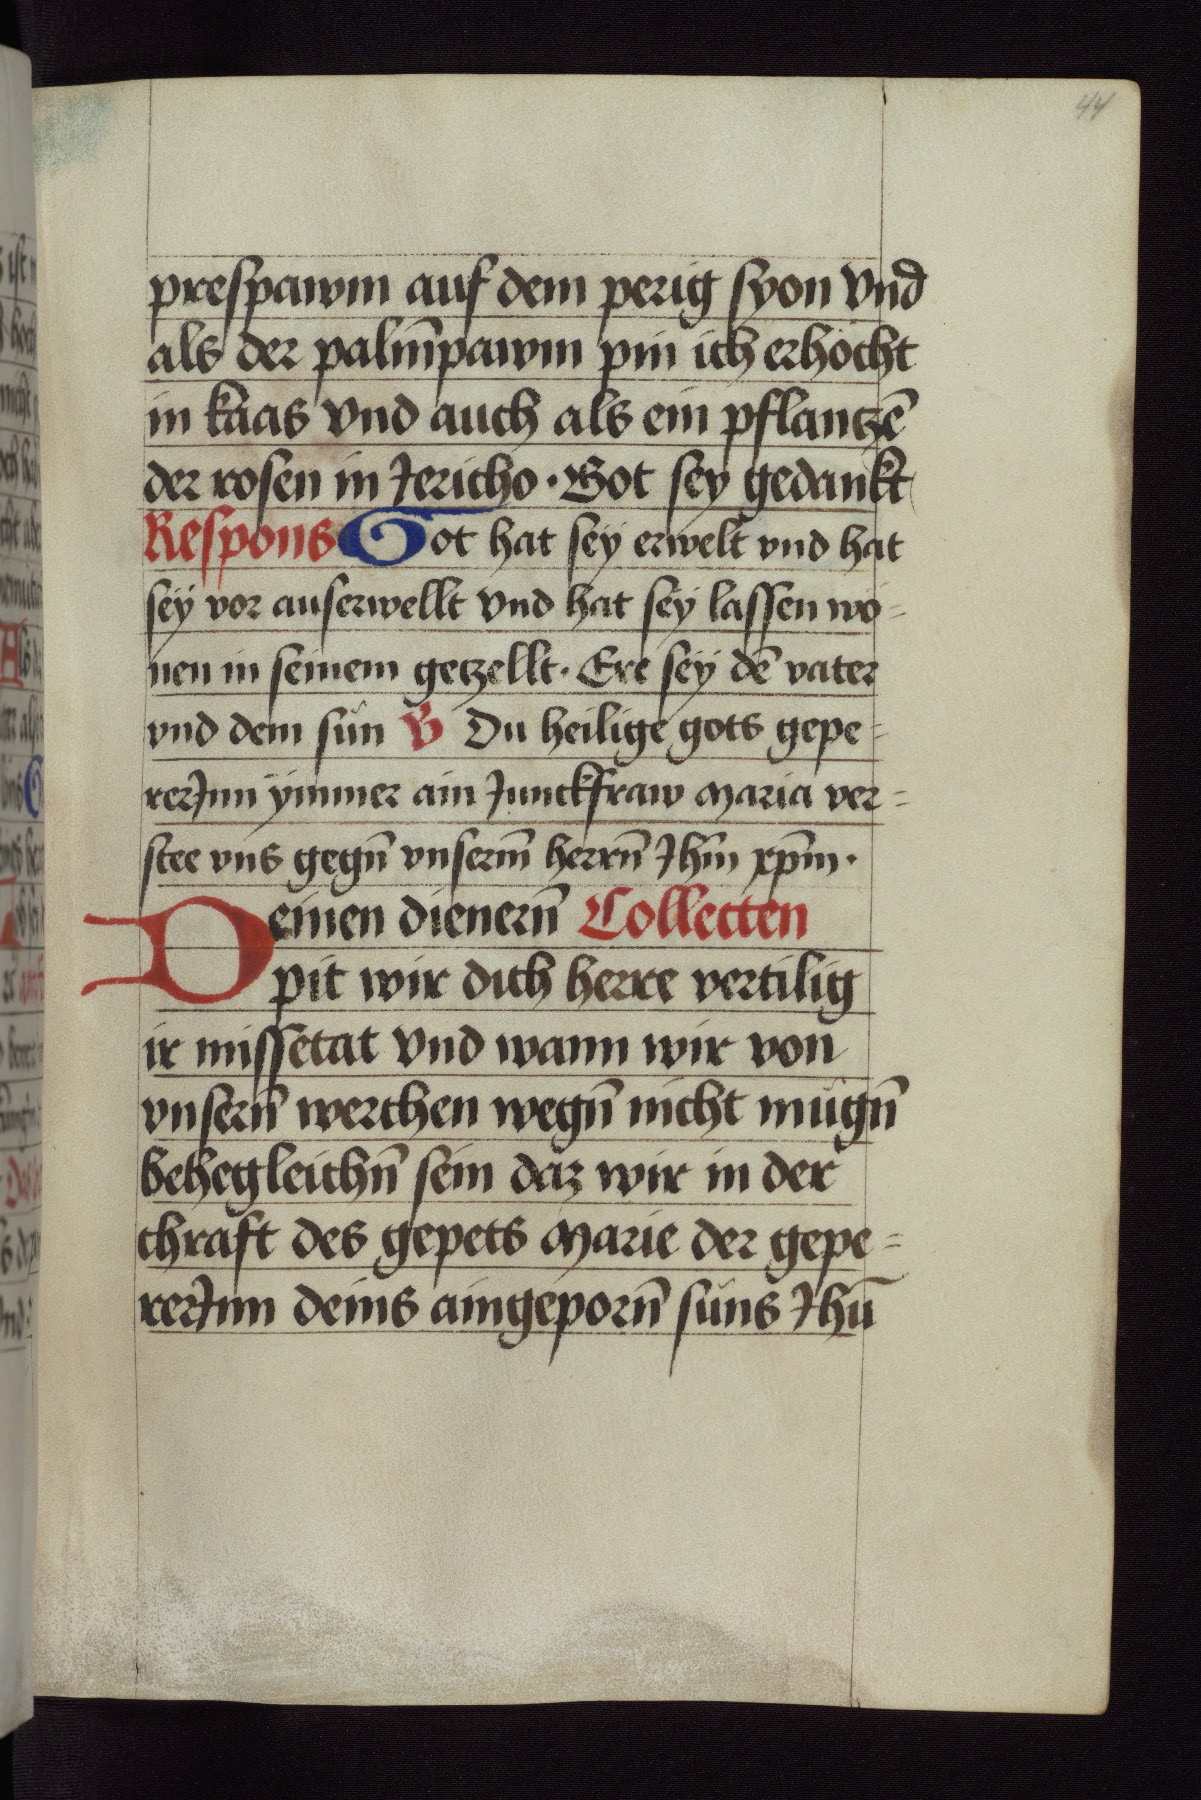 44
prespawm auf dem perig syon vnd
als der palm̄pawm pin ich erhöcht
in kaas vnd auch als ein pflantzē
der rosen in Jericho · Got sey gedankt
Respons Got hat sey erwelt vnd hat
sey vor auserwellt vnd hat sey lassen wo-
nen in seinem getzellt · Ere sey dē vater
vnd dem sun V Du heilige gots gepe-
rerJnn ymmer ain Junckfraw maria ver-
stee vns gegn̄ vnserm̄ herrn̄ Jhm̄ xp̄m ·
Deinen dienern̄ Collecten
pit wir dich herre vertilig
ir missetat vnd wann wir von
vnsern̄ werchen wegn̄ nicht mugn̄
behegleichn̄ sein daz wir in der
chraft des gepets marie der gepe-
rerJnn deins aingeporn̄ suns Jhū